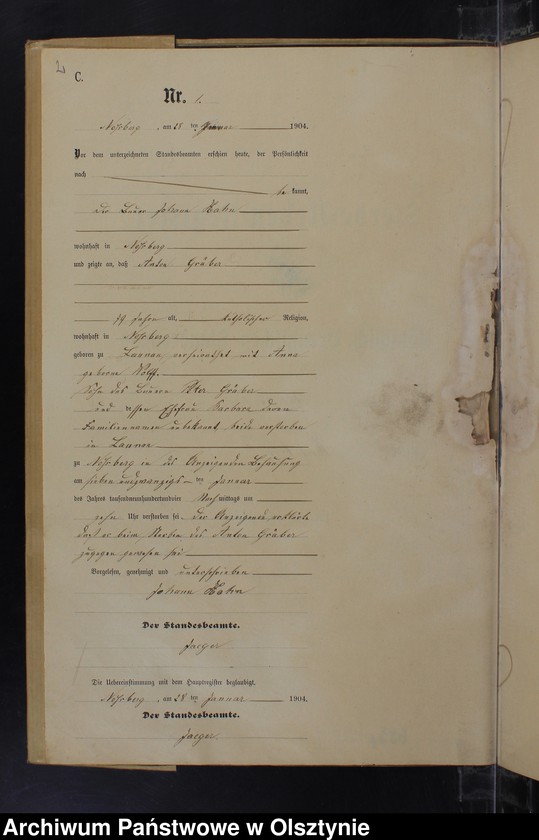 2
C.
Nr. 1.
Noßberg, am 28 ten Januar 1904.
Vor dem unterzeichneten Standesbeamten erschien heute, der Persönlichkeit
nach
be kannt,
der Bauer Johann Hahn
wohnhaft in Noßberg
und zeigte an, daß Anton Gräber
79 Jahre alt, katholischer Religion,
wohnhaft in Noßberg
geboren zu Launau, verheirathet mit Anna
geborne Wolff.
Sohn des Bauern Peter Gräber
und dessen Ehefrau Barbara deren
Familiennamen unbekannt beide verstorben
in Launau
zu Noßberg in des Anzeigenden Behausung
am sieben und zwanzigsten Januar
des Jahres tausendneunhundertundvier Nachmittags um
zehn Uhr verstorben sei. Der Anzeigende erklärte
daß er beim Sterben des Anton Gräber
zugegen gewesen sei
Vorgelesen, genehmigt und unterschrieben
Johann Hahn
Der Standesbeamte.
Jaeger
Die Uebereinstimmung mit dem Hauptregister beglaubigt.
Noßberg, am 28 ten Januar 1904.
Der Standesbeamte.
Jaeger.
Archiwum Państwowe w Olsztynie